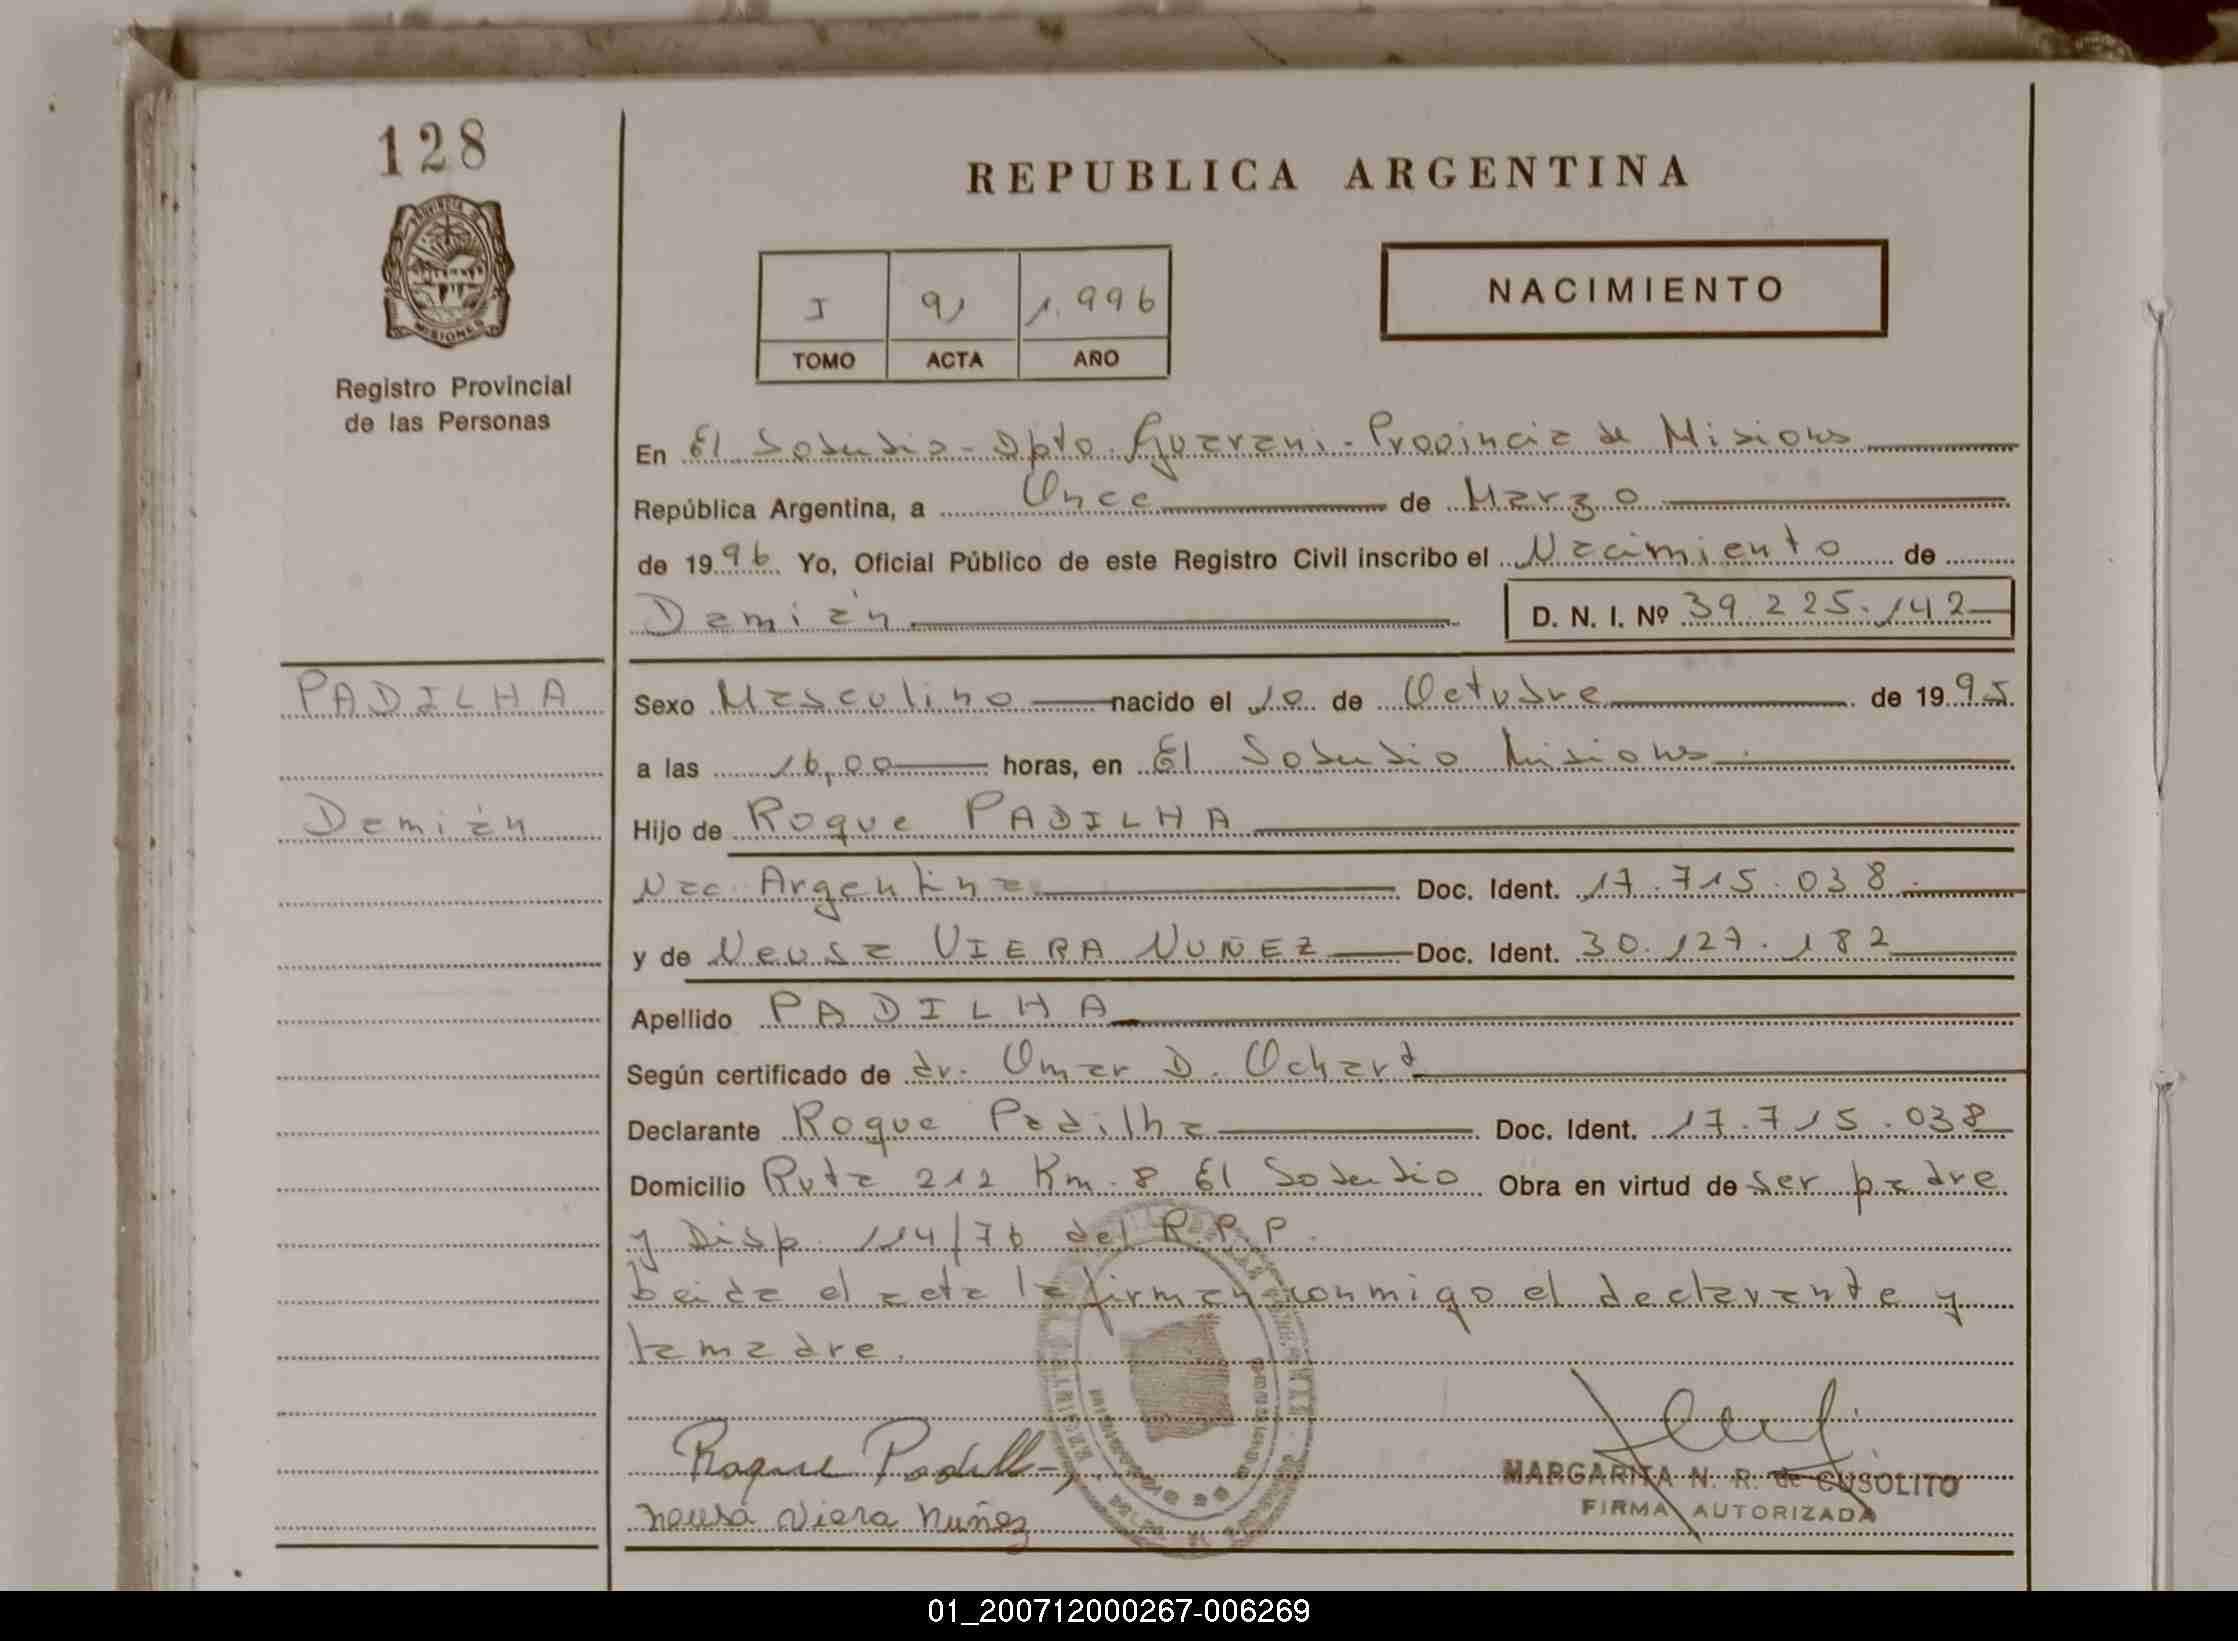 128
PROVINCIA DE
MISIONES
Registro Provincial
de las Personas
REPUBLICA ARGENTINA
I 91 1.996
TOMO ACTA AÑO
NACIMIENTO
En El Soberbio - Dpto. Guarani - Provincia de Misiones
República Argentina, a Once de Marzo
de 1996 Yo, Oficial Público de este Registro Civil inscribo el Nacimiento de
Damián D. N. I. Nº 39.225.142
PADILHA
Damián
Sexo Masculino nacido el 10 de Octubre de 1995
a las 16,00 horas, en El Soberbio Misiones.
Hijo de Roque PADILHA
Nac. Argentina Doc. Ident. 17.715.038.
y de Neusa VIERA NUÑEZ Doc. Ident. 30.127.182
Apellido PADILHA
Según certificado de dr. Omar D. Ochard
Declarante Roque Padilha Doc. Ident. 17.715.038
Domicilio Ruta 212 Km. 8 El Soberbio Obra en virtud de ser padre
y Disp. 114/76 del R.P.P.
Leida el acta la firman conmigo el declarante y
la madre.
Roque Padilh
neusa Viera nuñez
MARGARITA N. R. de CUSOLITO
FIRMA AUTORIZADA
01_200712000267-006269